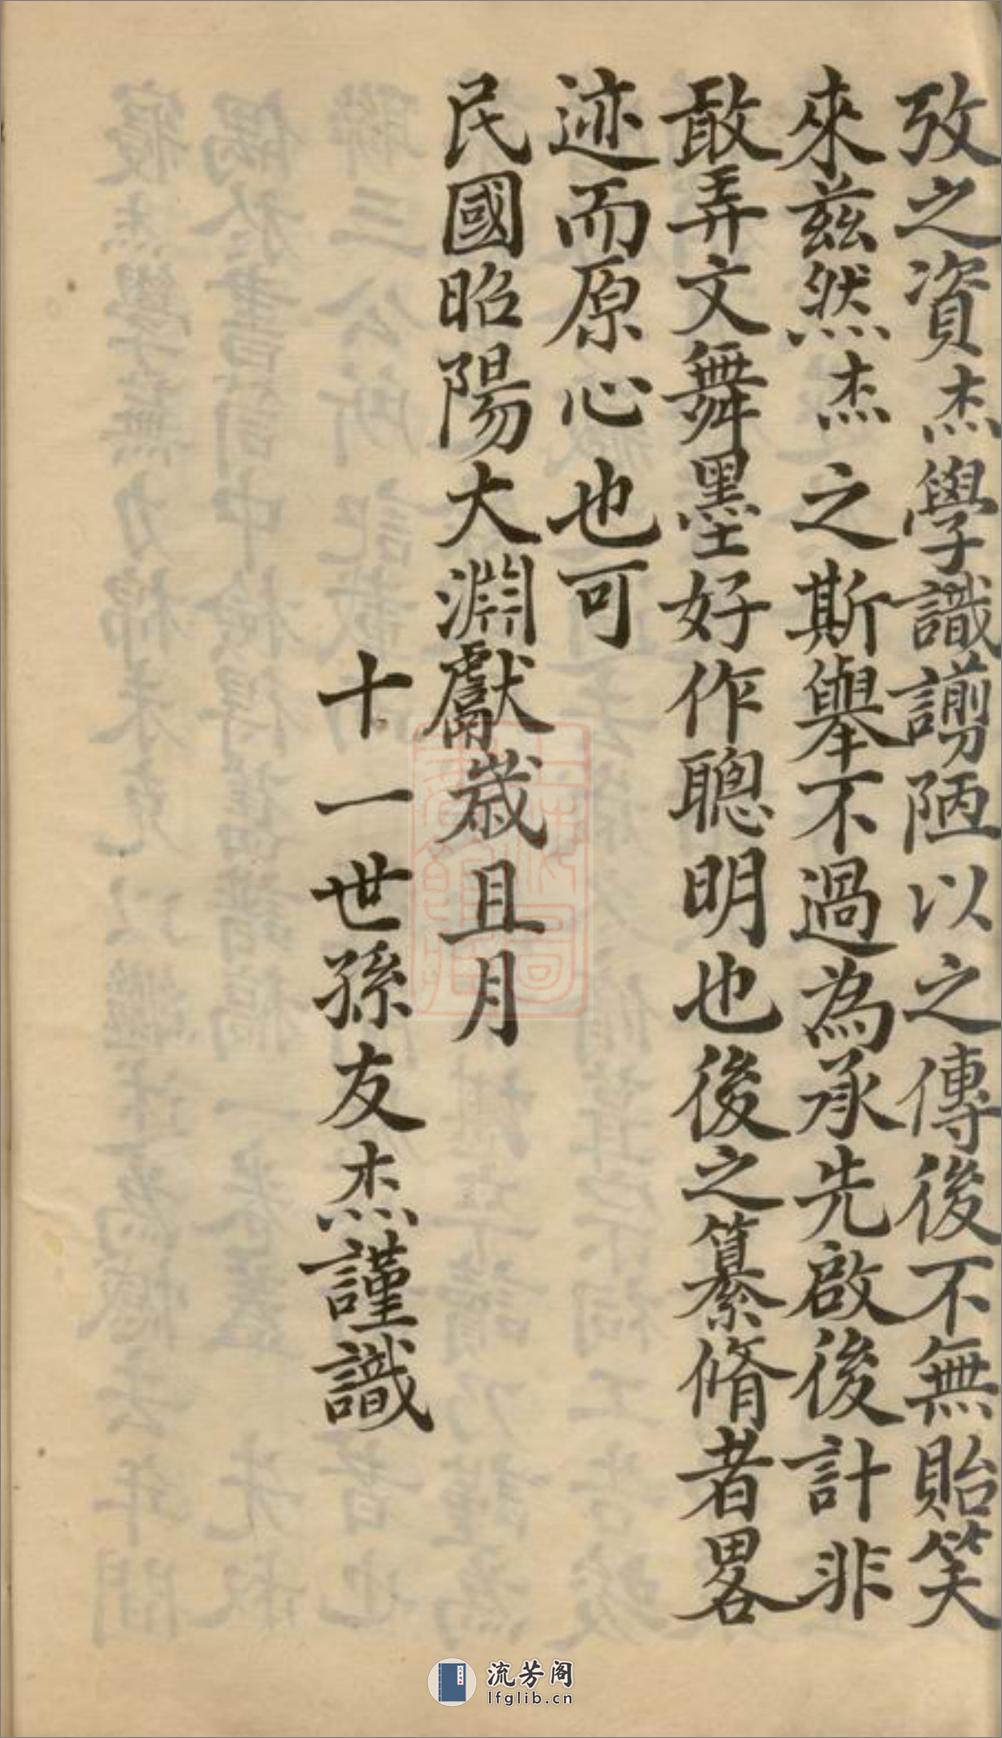 攷之資杰學識謭陋以之傳後不無貽笑
來兹然杰之斯舉不過為承先啟後計非
敢弄文舞墨好作聰明也後之纂脩者畧
迹而原心也可
民國昭陽大淵獻歲且月
十一世孫友杰謹識
流芳阁
lfglib.cn